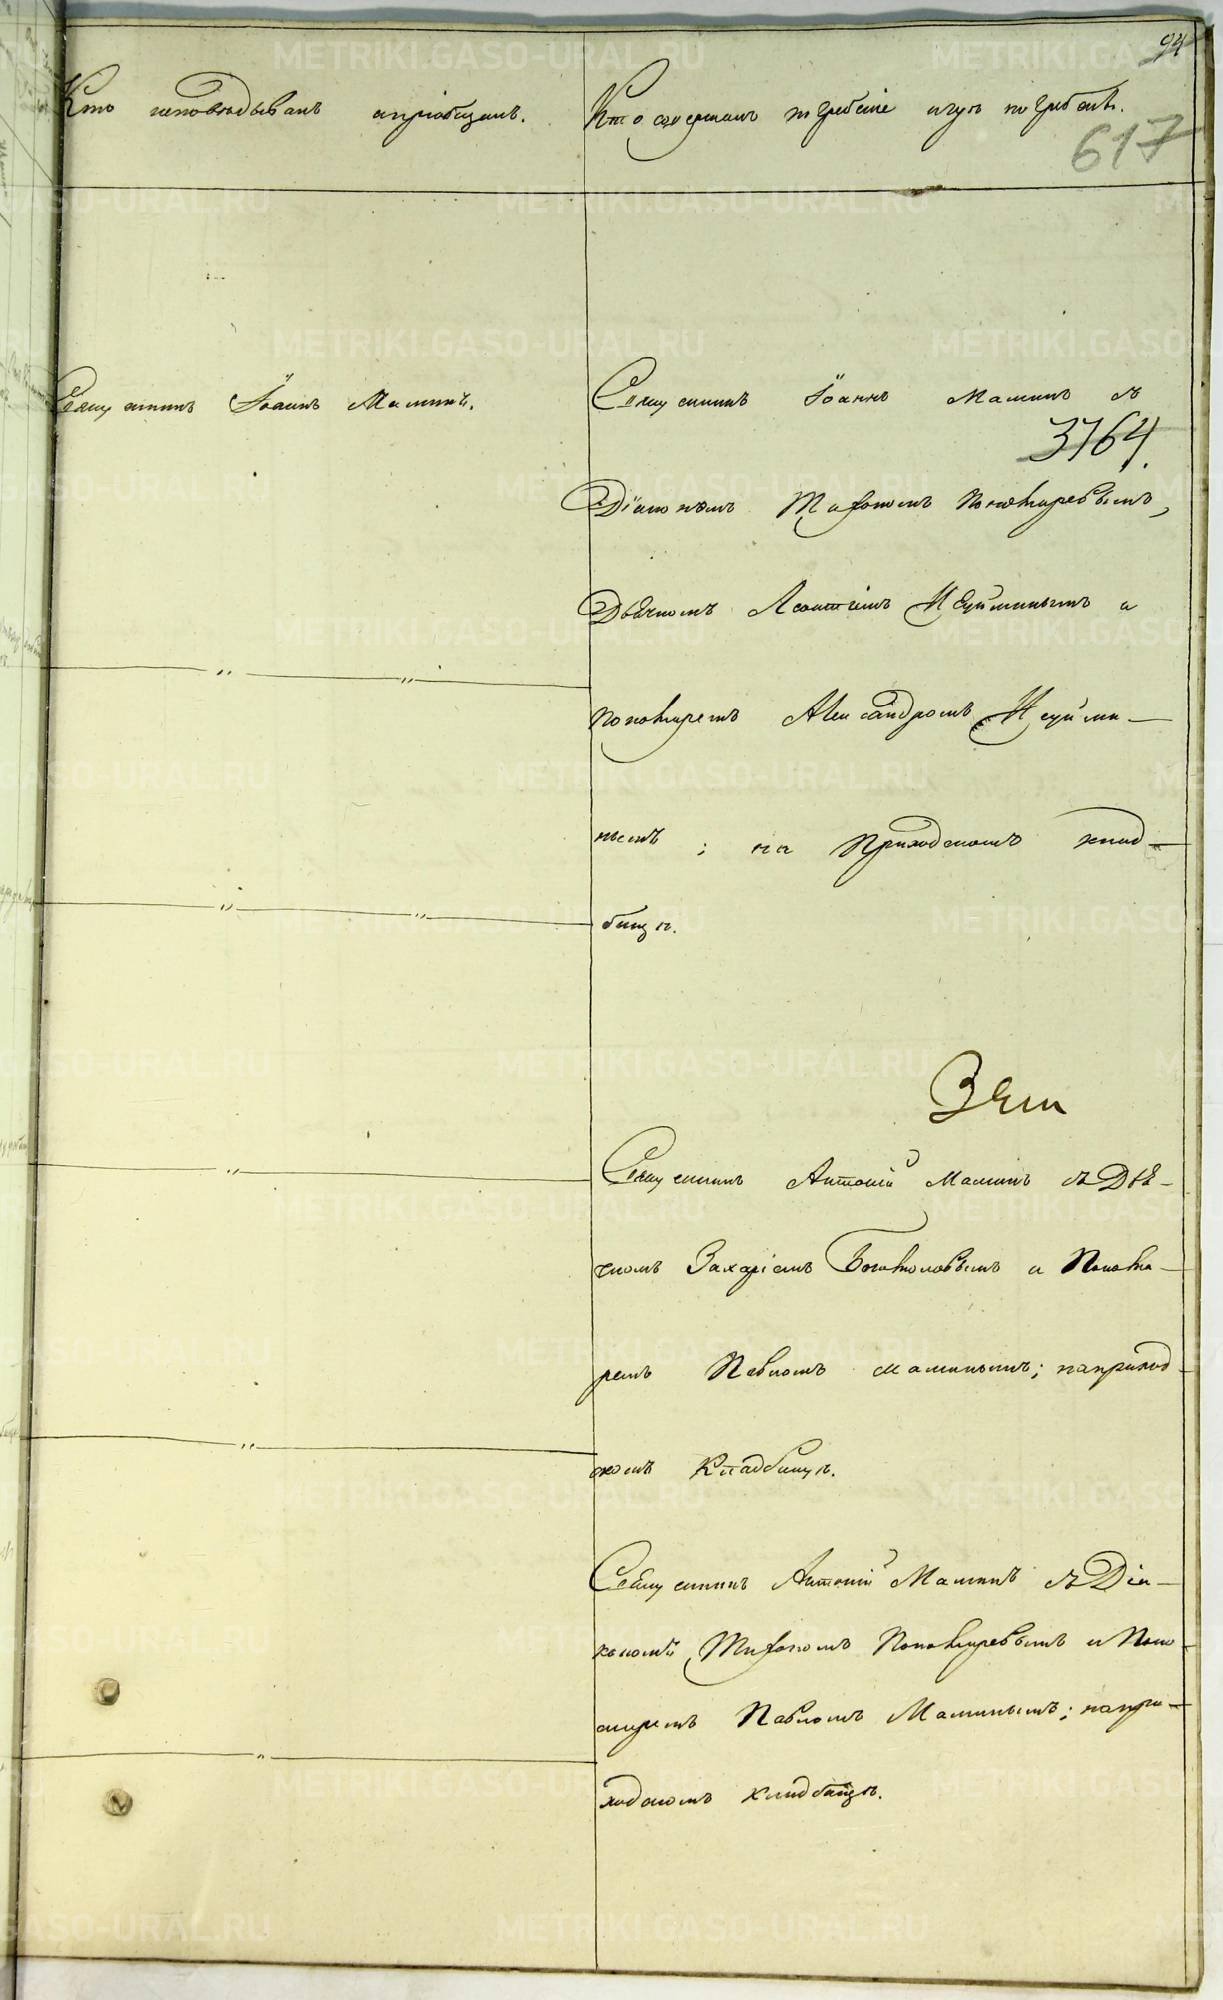 94
Кто исповѣдывалъ и пріобщалъ.
Кто совершалъ погребеніе и гдѣ погребенъ.
617
Священникъ Іоаннъ Маминъ.
Священникъ Іоаннъ Маминъ съ
3764.
Діакономъ Пономаревымъ,
Дьячкомъ Леонтіемъ Неуйминымъ и
пономаремъ Александромъ Неуйми–
нымъ; на Приходскомъ клад–
бищѣ.
Священникъ Антоній Маминъ съ Дья–
чкомъ Захаріемъ и Понома–
ремъ Павломъ Маминымъ; на приход–
скомъ Кладбищѣ.
Священникъ Антоній Маминъ съ Діа–
кономъ Пономаревымъ и Поно–
маремъ Павломъ Маминымъ; на при–
ходскомъ кладбищѣ.
METRIKI.GASO-URAL.RU